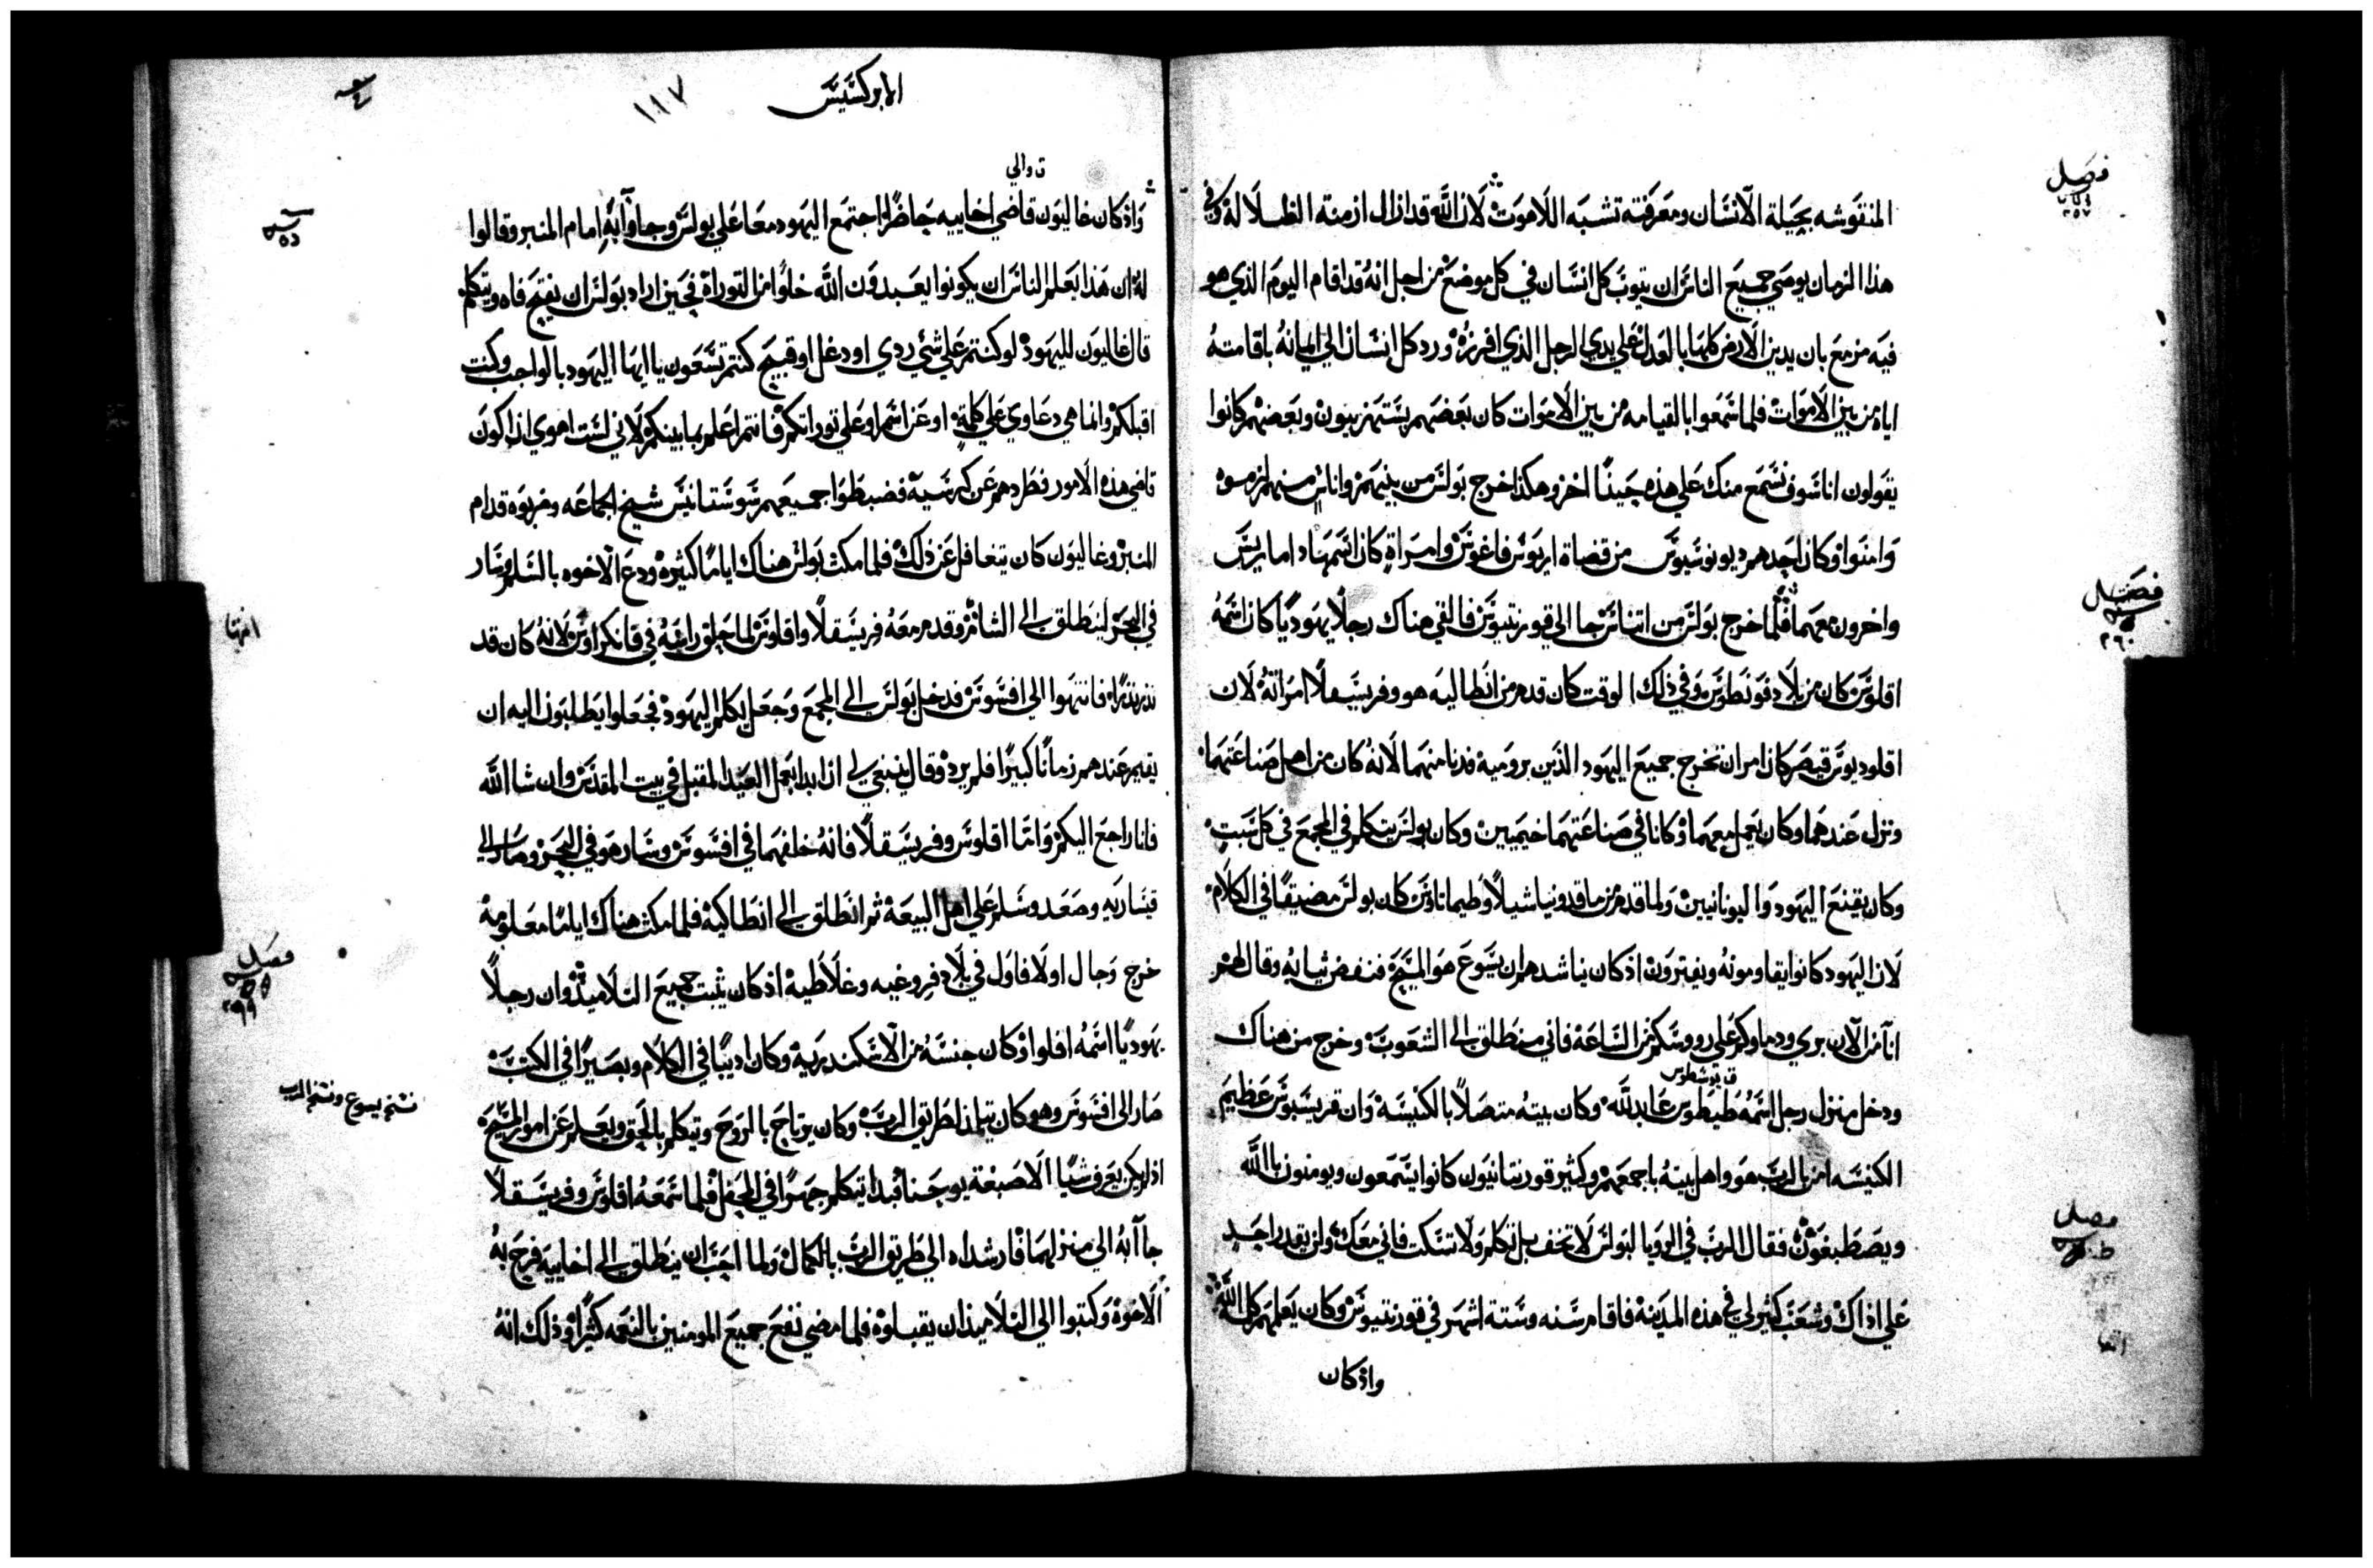 فصل
٢٥٧
المنقوشه بحيلة الانسان ومعرفته تشبه اللاهوت لان الله قد ازال ازمنة الضلاله وفي
هذا الزمان يوصي جميع الناس ان يتوب كل انسان في كل موضع من اجل انه قد اقام اليوم الذي هو
فيه مزمع بان يدين الارض كلها بالعدل على يدي الرجل الذي افرزه ورد كل انسان الى ايمانه باقامته
اياه من بين الاموات فلما سمعوا بالقيامه من بين الاموات كان بعضهم يستهزيون وبعضهم كانوا
يقولون انا سوف نسمع منك على هذه حينًا اخر وهكذا خرج بولس من بينهم واناس منهم لزموه
وامنوا وكان احدهم ديونوسيوس من قضاة اريوس فاغوس وامراة كان اسمها داماريس
فصل
٢٦٠
واخرون معهما فلما خرج بولس من اثيناس جا الى قورنثيوس فالفي هناك رجلًا يهوديًا كان اسمه
اقلوس كان من بلاد فونطوس وفي ذلك الوقت كان قدم من انطاليه هو وفريسقلا امراته لان
اقلوديوس قيصر كان امر ان تخرج جميع اليهود الذين برومية فدنا منهما لانه كان من اهل صناعتهما
ونزل عندهما وكان يعمل معهما وكانا في صناعتهما خيميين وكان بولس يتكلم في المجمع في كل سبت
وكان يقنع اليهود واليونانيين ولما قدم من ماقدونيا شيلا وطيماتاوس كان بولس مضيقًا في الكلام
لان اليهود كانوا يقاومونه ويفترون اذ كان يناشدهم ان يسوع هو المسيح فنفض ثيابه وقال لهم
انا من الان بري ودماوكم على رووسكم من الساعة فاني منطلق الى الشعوب وخرج من هناك
ق يوسطوس
ودخل منزل رجل اسمه طيطوس عابد لله وكان بيته متصلًا بالكنيسة وان قريسبوس عظيم
الكنيسه امن بالرب هو واهل بيته باجمعهم وكثير قورنتانيون كانوا يسمعون ويومنون بالله
فصل
ويصطبغون فقال الرب في الرويا لبولس لا تخف بل تكلم ولا تسكت فاني معك ولن يقدر احد
على اذاك وشعب كثير لي في هذه المدينة فاقام سنه وستة اشهر في قورنثيوس وكان يعلمهم كل الله
واذ كان
الابركسيس
١٨٧
ق والي
واذ كان غاليون قاضي اخاييه حاضرًا اجتمع اليهود معا على بولس وجاوا به امام المنبر وقالوا
له ان هذا يعلم الناس ان يكونوا يعبدون الله خلوًا من التوراة فحين اراد بولس ان يفتح فاه ويتكلم
قال غاليون لليهود لو كنتم على شي ردي او دغل او قبيح كنتم تسعون يا ايها اليهود بالواجب وكنت
اقبلكم وانما هي دعاوي على كلمة او عن اسم او على توراتكم فانتم اعلم بما بينكم لاني لست اهوى ان اكون
قاضي هذه الامور فطردهم عن كرسيه فضبطوا جميعهم سوستانيس شيخ الجماعه وضربوه قدام
المنبر وغاليون كان يتغافل عن ذلك فلما مكث بولس هناك ايامًا كثيره ودع الاخوه بالسلم وسار
في البحر لينطلق الى الشام وقدم معه فريسقلا واقلوس لما حلق راسه في قانكراوس لانه كان قد
نذر نذرًا فانتهوا الى افسوس فدخل بولس الى المجمع وجعل يكلم اليهود فجعلوا يطلبون اليه ان
يقيم عندهم زمانًا كبيرًا فلم يرد وقال ينبغي لي ان ابدا بعمل العيد المقبل في بيت المقدس وان شا الله
فانا راجع اليكم واما اقلوس وفريسقلا فانه خلفهما في افسوس وسار هو في البحر وصار الى
قيساريه وصعد وسلم على اهل البيعة ثم انطلق الى انطاكية فلما مكث هناك ايامًا معلومة
فصل
خرج وجال اولا فاول في بلاد فروغيه وغلاطية اذ كان يثبت جميع التلاميذ وان رجلًا
يهوديًا اسمه افلوا وكان جنسه من الاسكندرية وكان اديبًا في الكلام وبصيرًا في الكتب
نسخه يسوع ونسخه الرب
صار الى افسوس وهو كان تيلمذ لطريق الرب وكان يرتاح بالروح ويتكلم بالحق ويعلم عن امور المسيح
اذ لم يكن يعرف شيًا الا صبغة يوحنا فبدا يتكلم جهرًا في المحفل فلما سمعه اقلوس وفريسقلا
جاابه الى منزلهما فارشداه الى طريق الرب بالكمال ولما احب ان ينطلق الى اخاييه فرح به
الاخوة وكتبوا الى التلاميذ ان يقبلوه فلما مضى نفع جميع المومنين بالنعمه كثيرًا وذلك انه